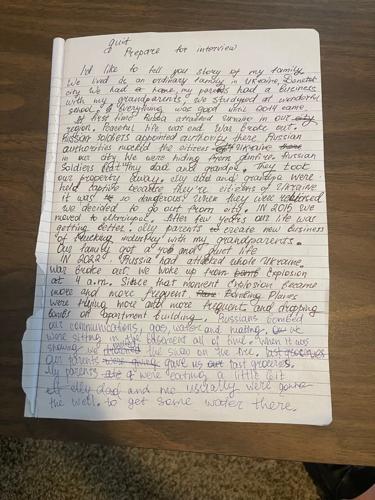 quit
Prepare for interview
I'd like to tell you story of my family
We lived as an ordinary family in Ukraine, Donetsk
city. We had a home, my parents had a business
with my grandparents, we studyed at wonderful
school. Everything was good until 2014 came.
At first time Russia attacked Ukraine in our city
region. Peaceful life was end. War broke out.
Russian soldiers appointed authority there. Russian
authorities the citizens of Ukraine there
in our city. We were hiding from gunfire. Russian
soldiers my dad and grandpa. They took
our property away. My dad and grandpa were
held captive because they're citizens of Ukraine
It was so dangerous! When they were
we decided to go out from city. In 2015 we
moved to Mariupol. After few years our life was
getting better. My parents create new business
of trucking industry with my grandparents.
Our family got a and quiet life
IN 2022 Russia had attacked whole Ukraine.
War broke out. We woke up from bomb explosion
at 4 a.m. Since that moment explosion became
more and more frequent. Bombing Planes
were flying more and more frequent and dropping
bombs on apartment building. Russians bombed
our communications, gas, water and heating. we
were sitting in basement all of time. When it was
snowing we the snow on the fire.
Our parents gave us last groceries.
My parents were eating a little bit
My dad and me usually were gonna
the well. to get some water there.